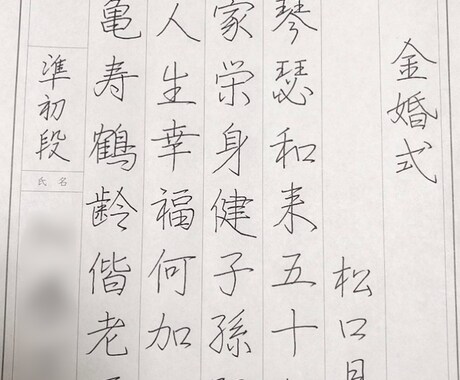 金婚式
松口月
琴瑟和来五十
家栄身健子孫
人生幸福何加
亀寿鶴齢偕老
準初段
氏名